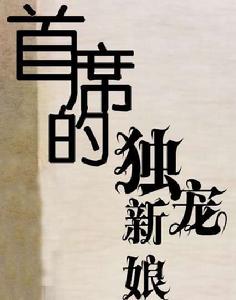 首席的
独宠
新娘